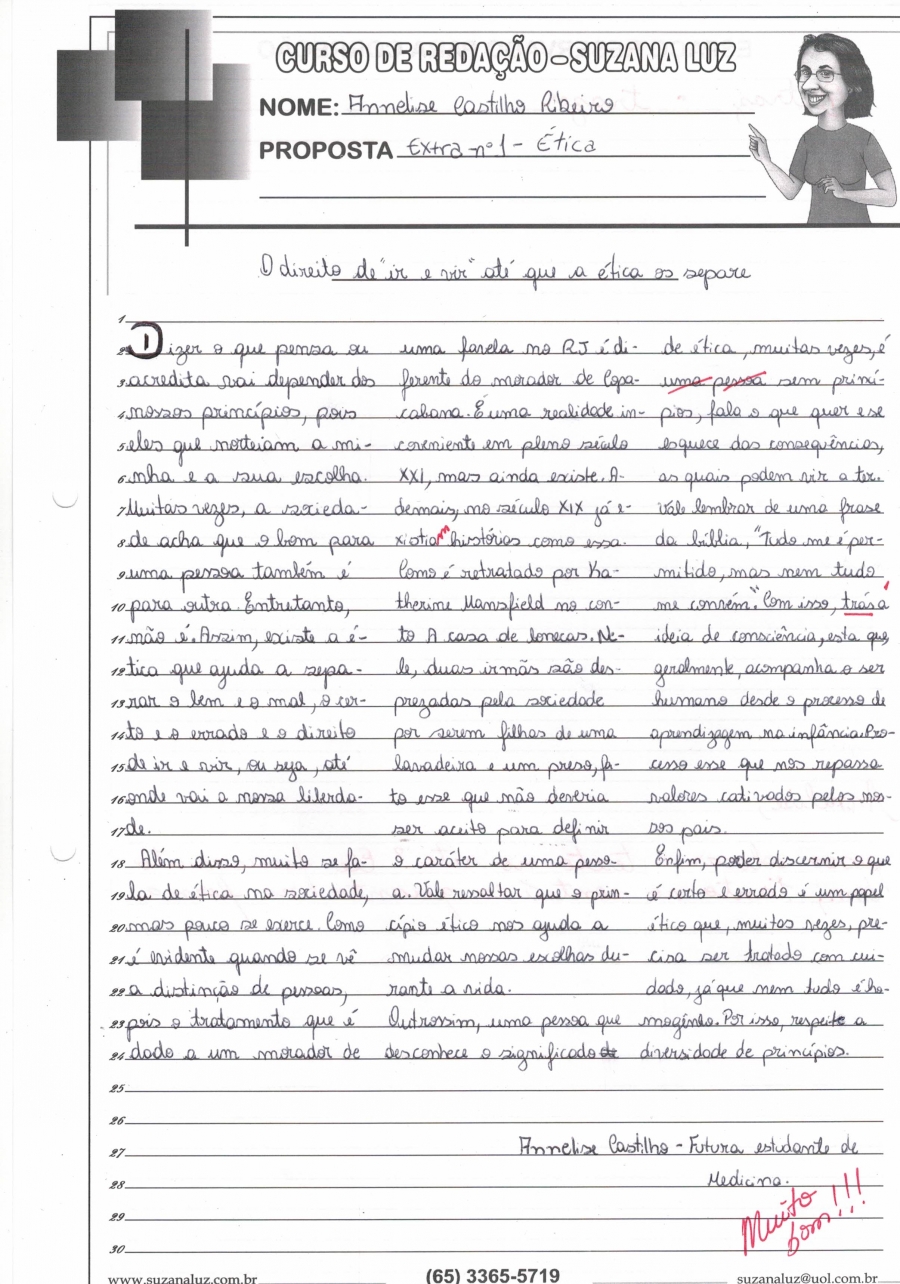 CURSO DE REDAÇÃO - SUZANA LUZ
NOME: Annelise Castilho Ribeiro
PROPOSTA Extra nº 1 - Ética
O direito de "ir e vir" até que a ética os separe
1
2
3
4
5
6
7
8
9
10
11
12
13
14
15
16
17
18
19
20
21
22
23
24
25
26
27
28
29
30
Dizer o que pensa ou
acredita vai depender dos
nossos princípios, pois
eles que norteiam a mi-
nha e a sua escolha.
Muitas vezes, a socieda-
de acha que o bom para
uma pessoa também é
para outra. Entretanto,
não é. Assim, existe a é-
tica que ajuda a sepa-
rar o bem e o mal, o cer-
to e o errado e o direito
de ir e vir, ou seja, até
onde vai a nossa liberda-
de.
Além disso, muito se fa-
la de ética na sociedade,
mas pouco se exerce. Como
é evidente quando se vê
a distinção de pessoas,
pois o tratamento que é
dado a um morador de
uma favela no RJ é di-
ferente do morador de Copa-
cabana. É uma realidade in-
coveniente em pleno século
XXI, mas ainda existe. A-
demais, no século XIX já e-
xistiam histórias como essa.
Como é retratado por Ka-
therine Mansfield no con-
to A casa de bonecas. Ne-
le, duas irmãs são des-
prezadas pela sociedade
por serem filhas de uma
lavadeira e um preso, fa-
to esse que não deveria
ser aceito para definir
o caráter de uma pesso-
a. Vale ressaltar que o prin-
cípio ético nos ajuda a
mudar nossas escolhas du-
rante a vida.
Outrossim, uma pessoa que
desconhece o significado de
de ética, muitas vezes, é
uma pessoa sem princí-
pios, fala o que quer e se
esquece das consequências,
as quais podem vir a ter.
Vale lembrar de uma frase
da bíblia, "Tudo me é per-
mitido, mas nem tudo
me convém." Com isso, trás a
ideia de consciência, esta que,
geralmente, acompanha o ser
humano desde o processo de
aprendizagem na infância. Pro-
cesso esse que nos repassa
valores cativados pelos nos-
sos pais.
Enfim, poder discernir o que
é certo e errado é um papel
ético que, muitas vezes, pre-
cisa ser tratado com cui-
dado, já que nem tudo é ho-
mogênio. Por isso, respeite a
diversidade de princípios.
Annelise Castilho - Futura estudante de
Medicina.
Muito
bom!!!
www.suzanaluz.com.br
(65) 3365-5719
suzanaluz@uol.com.br